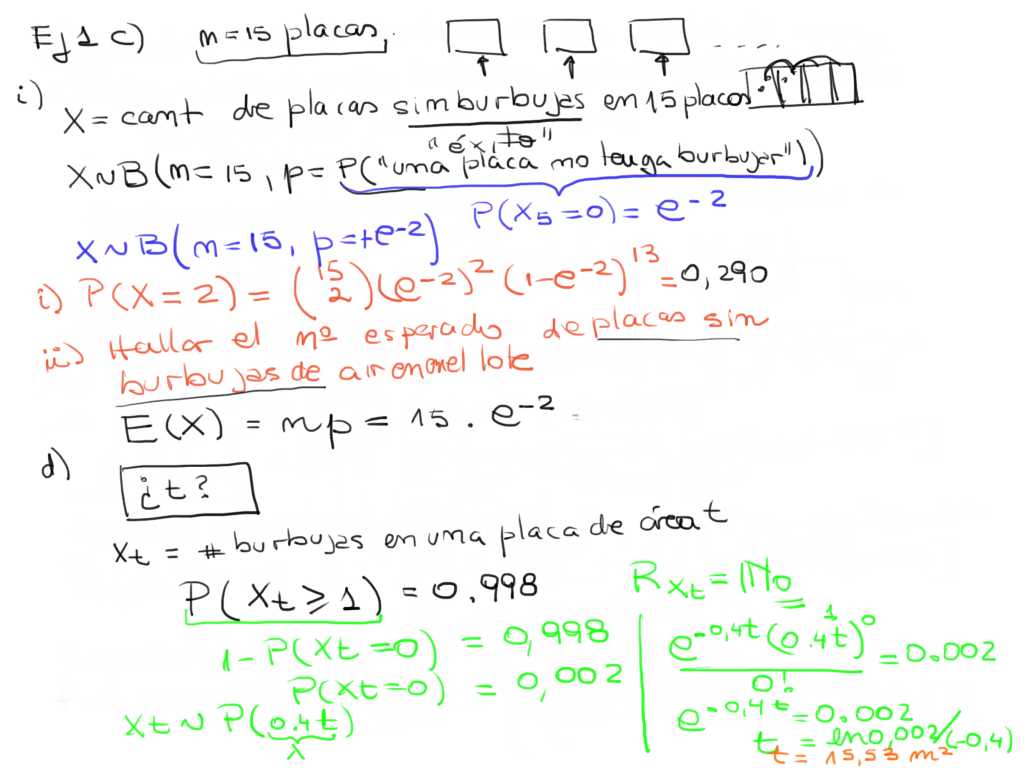 Ej 1 c) n=15 placas.
i) X = cant de placas sin burbujas en 15 placas
"éxito"
X~B(n=15, p= P("una placa no tenga burbujas"))
P(X5=0) = e^-2
X~B(n=15, p=+e^-2)
i) P(X=2) = (15 2)(e^-2)^2 (1-e^-2)^13 = 0,290
ii) Hallar el nº esperado de placas sin
burbujas de aire en el lote
E(X) = np = 15 . e^-2 =
d) ¿t?
Xt = # burbujas en una placa de área t
P(Xt ≥ 1) = 0.998
1 - P(Xt=0) = 0,998
P(Xt=0) = 0,002
Xt ~ P(0.4t)
λ
R Xt = IN0
e^-0,4t (0.4t)^0 / 0! = 0.002
1
e^-0,4t = 0.002
t = ln 0,002/(-0,4)
t = 15,53 m²